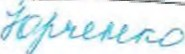 Юрченко